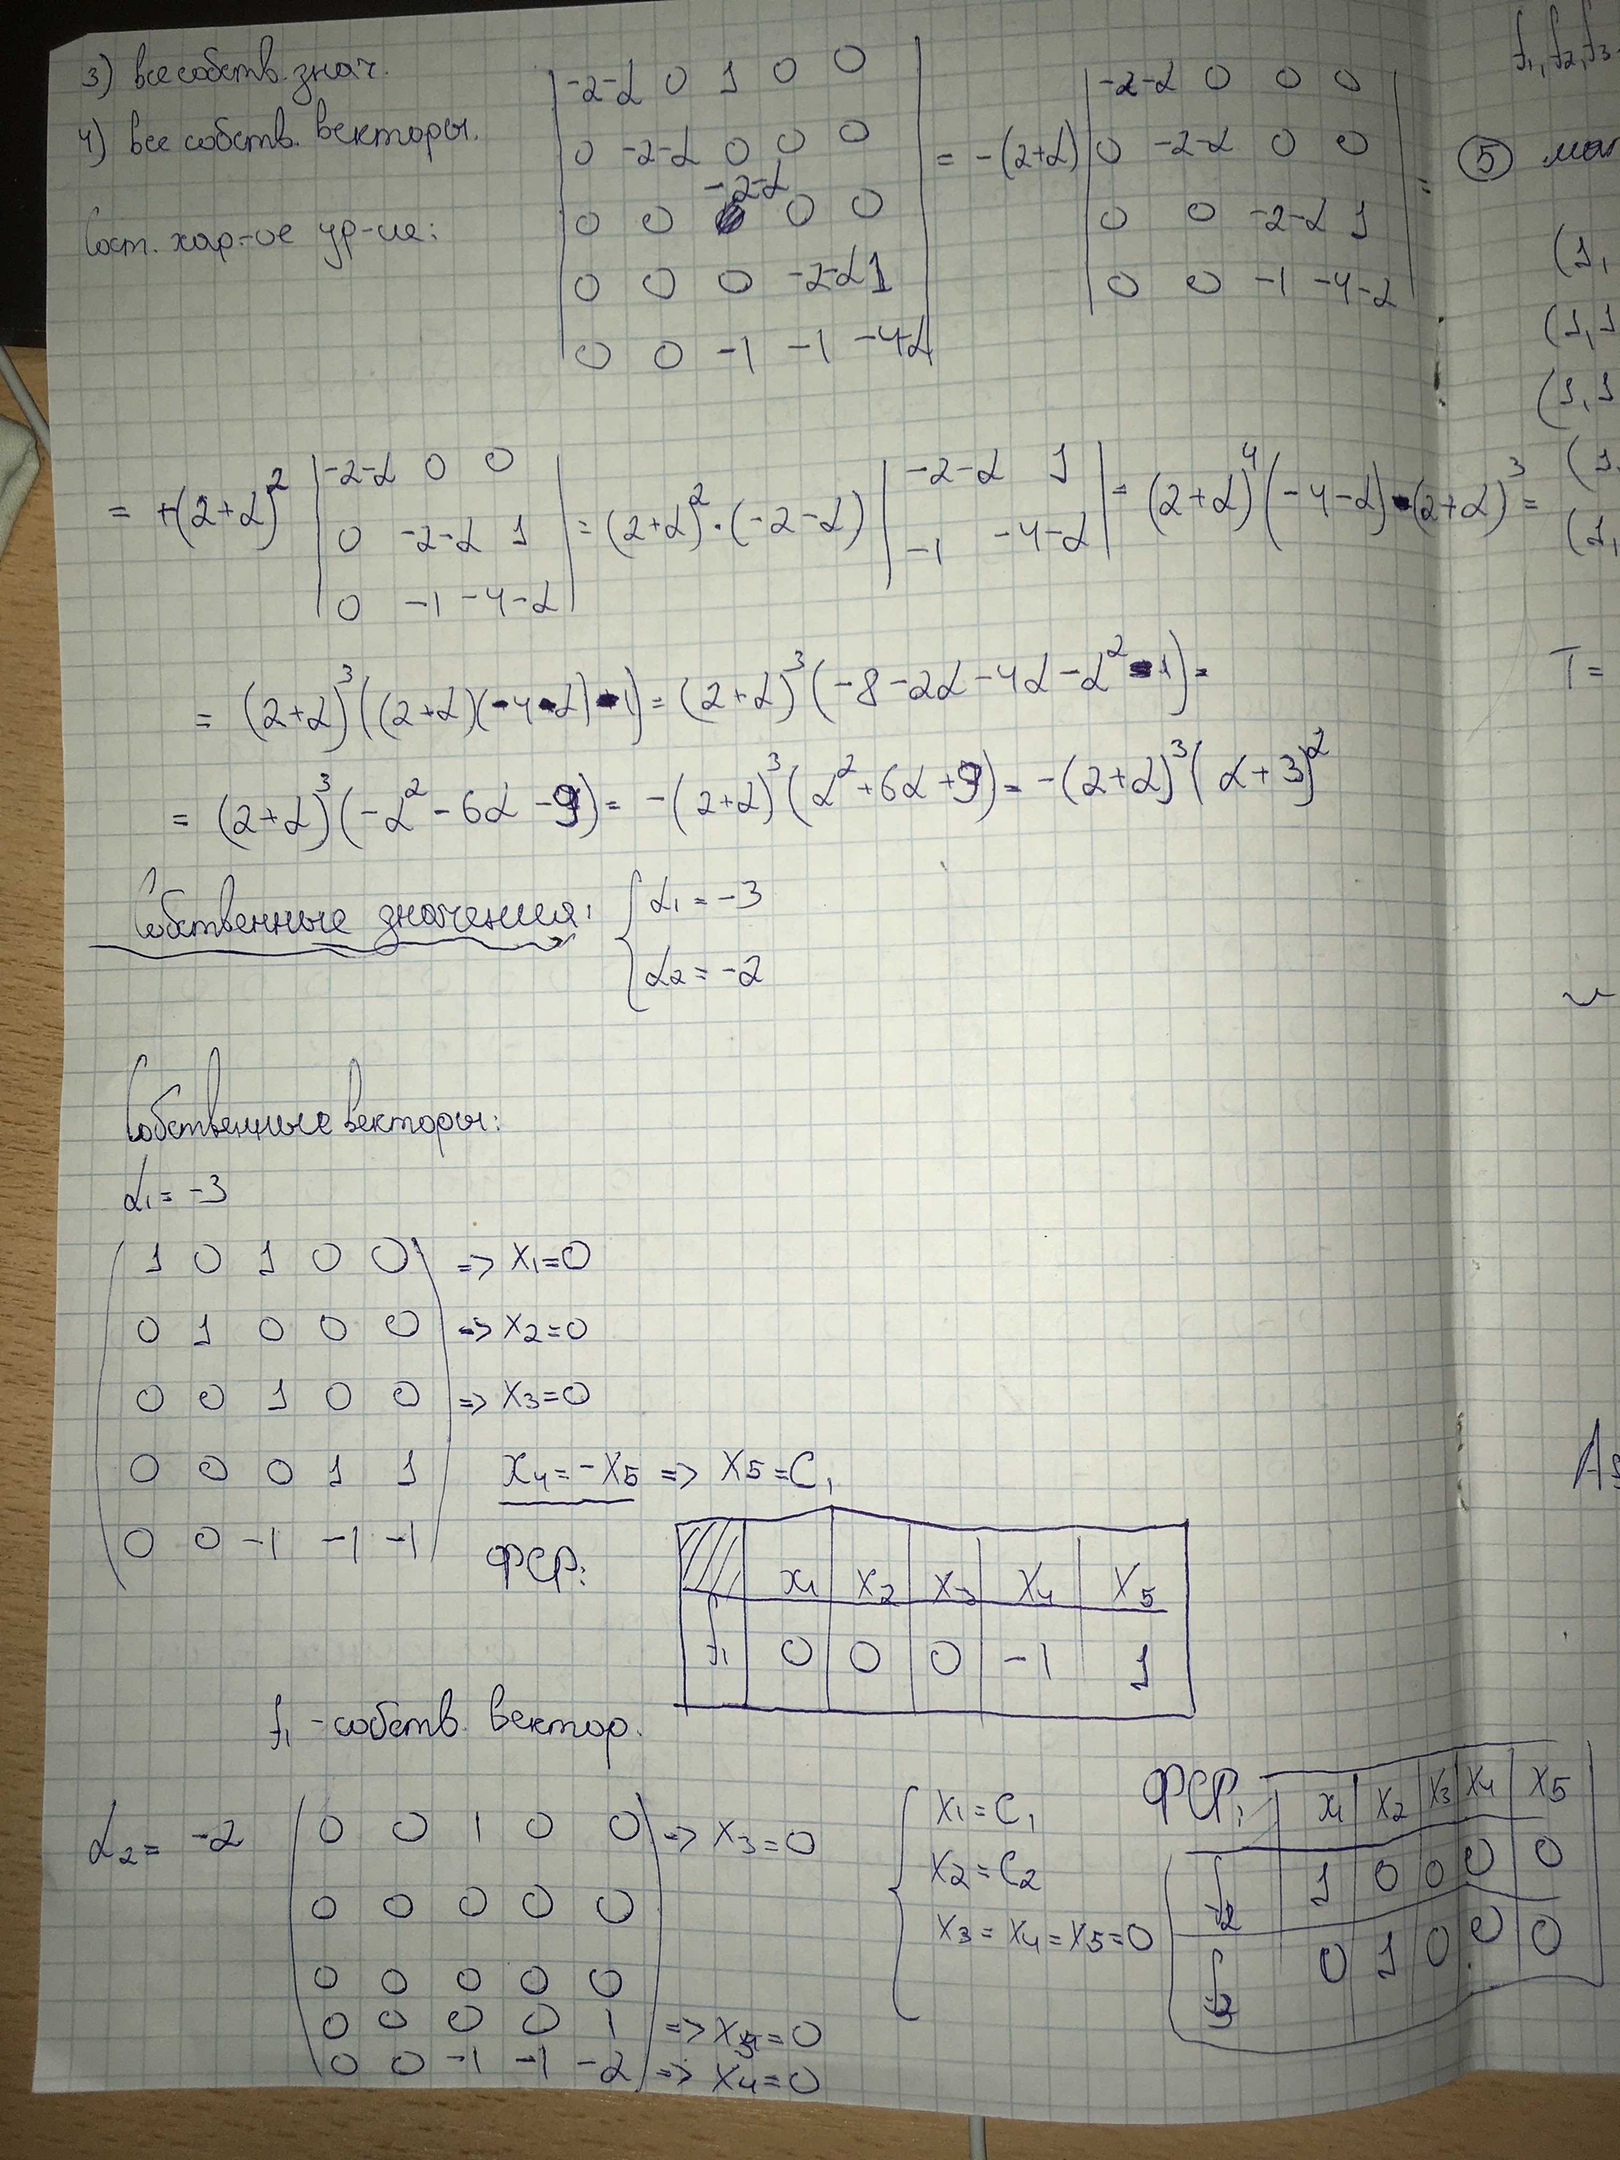 3) все собств. знач.
4) все собств. векторы.
Сост. хар-ое ур-ие:
| -2-λ 0 1 0 0 |
| 0 -2-λ 0 0 0 |
| 0 0 -2-λ 0 0 |
| 0 0 0 -2-λ 1 |
| 0 0 -1 -1 -4-λ |
= -(2+λ)
| -2-λ 0 0 0 |
| 0 -2-λ 0 0 |
| 0 0 -2-λ 1 |
| 0 0 -1 -4-λ |
=
= +(2+λ)²
| -2-λ 0 0 |
| 0 -2-λ 1 |
| 0 -1 -4-λ |
= (2+λ)²·(-2-λ)
| -2-λ 1 |
| -1 -4-λ |
= (2+λ)⁴(-4-λ)-(2+λ)³=
= (2+λ)³((2+λ)(-4-λ)-1) = (2+λ)³(-8-2λ-4λ-λ²-1)=
= (2+λ)³(-λ²-6λ-9) = -(2+λ)³(λ²+6λ+9) = -(2+λ)³(λ+3)²
Собственные значения:
{ λ₁ = -3
λ₂ = -2
Собственные векторы:
λ₁ = -3
( 1 0 1 0 0 ) => x₁=0
0 1 0 0 0 => x₂=0
0 0 1 0 0 => x₃=0
0 0 0 1 1 x₄=-x₅ => x₅=C₁
0 0 -1 -1 -1
ФСР:
x₁ x₂ x₃ x₄ x₅
f₁ 0 0 0 -1 1
f₁ - собств. вектор.
λ₂ = -2
( 0 0 1 0 0 ) => x₃=0
0 0 0 0 0
0 0 0 0 0
0 0 0 0 1 =0
0 0 -1 -1 -2 => x₄=0
{ x₁=C₁
x₂=C₂
x₃=x₄=x₅=0
ФСР:
x₁ x₂ x₃ x₄ x₅
f₂ 1 0 0 0 0
f₃ 0 1 0 0 0
f₁, f₂, f₃
⑤
(1,
(1,1
(1,1
(1,
(1,
T=